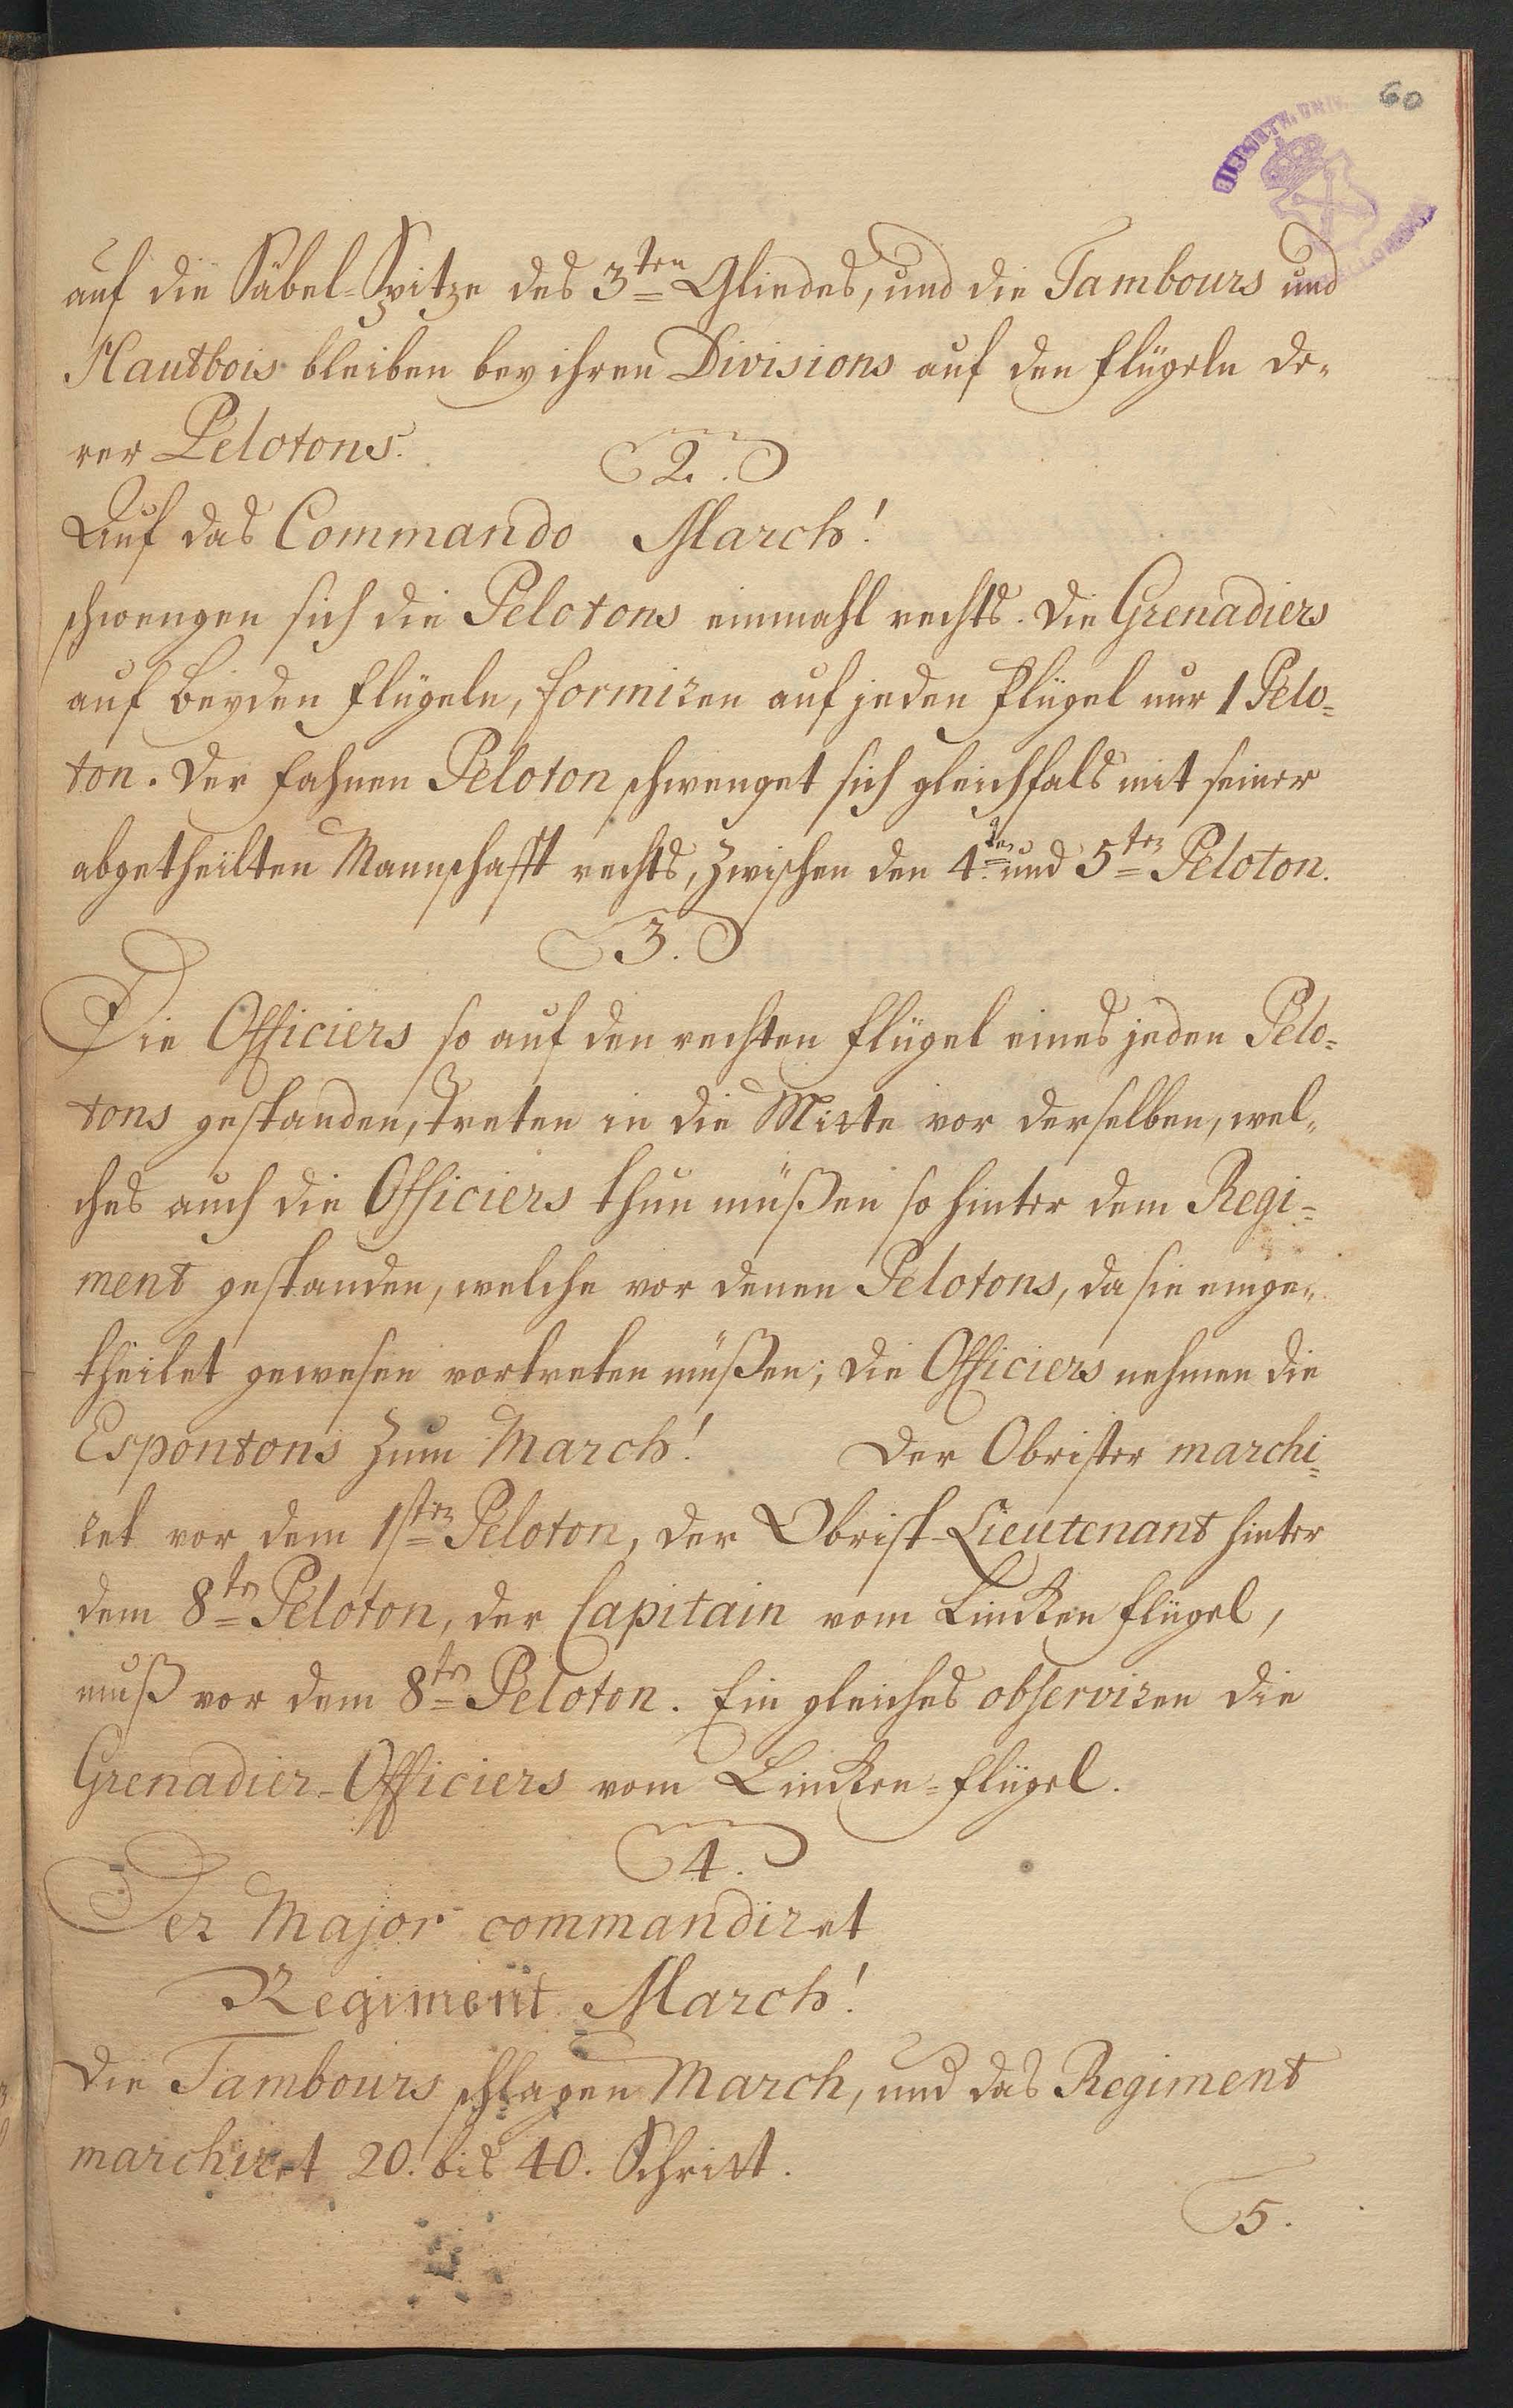 60
auf die Säbel-Spitze des 3ten Gliedes, und die Tambours und
Hautbois bleiben bey ihren Divisions auf den Flügeln de-
rer Pelotons.
2.
Auf das Commando March!
schwengen sich die Pelotons einmahl rechts. Die Grenadiers
auf beyden Flügeln, formiren auf jeden Flügel nur 1 Pelo=
ton. Der Fahnen Peloton schwenget sich gleichfals mit seiner
abgetheilten Mannschafft rechts, zwischen den 4ten und 5ten Peloton.
3.
Die Officiers so auf den rechten Flügel eines jeden Pelo=
tons gestanden, treten in die Mitte vor derselben, wel-
ches auch die Officiers thun müßen so hinter dem Regi=
ment gestanden, welche vor denen Pelotons, da sie einge-
theilet gewesen vortreten müßen; die Officiers nehmen die
Espontons zum March! Der Obrister marchi=
ret vor dem 1sten Peloton, der Obrist-Lieutenant hinter
dem 8ten Peloton, der Capitain vom Lincken Flügel,
muß vor dem 8ten Peloton. Ein gleiches observiren die
Grenadier-Officiers vom Lincken=Flügel.
4.
Der Major commandiret
Regiment March!
Die Tambours schlagen March, und das Regiment
marchiret 20. bis 40. Schritt.
5.